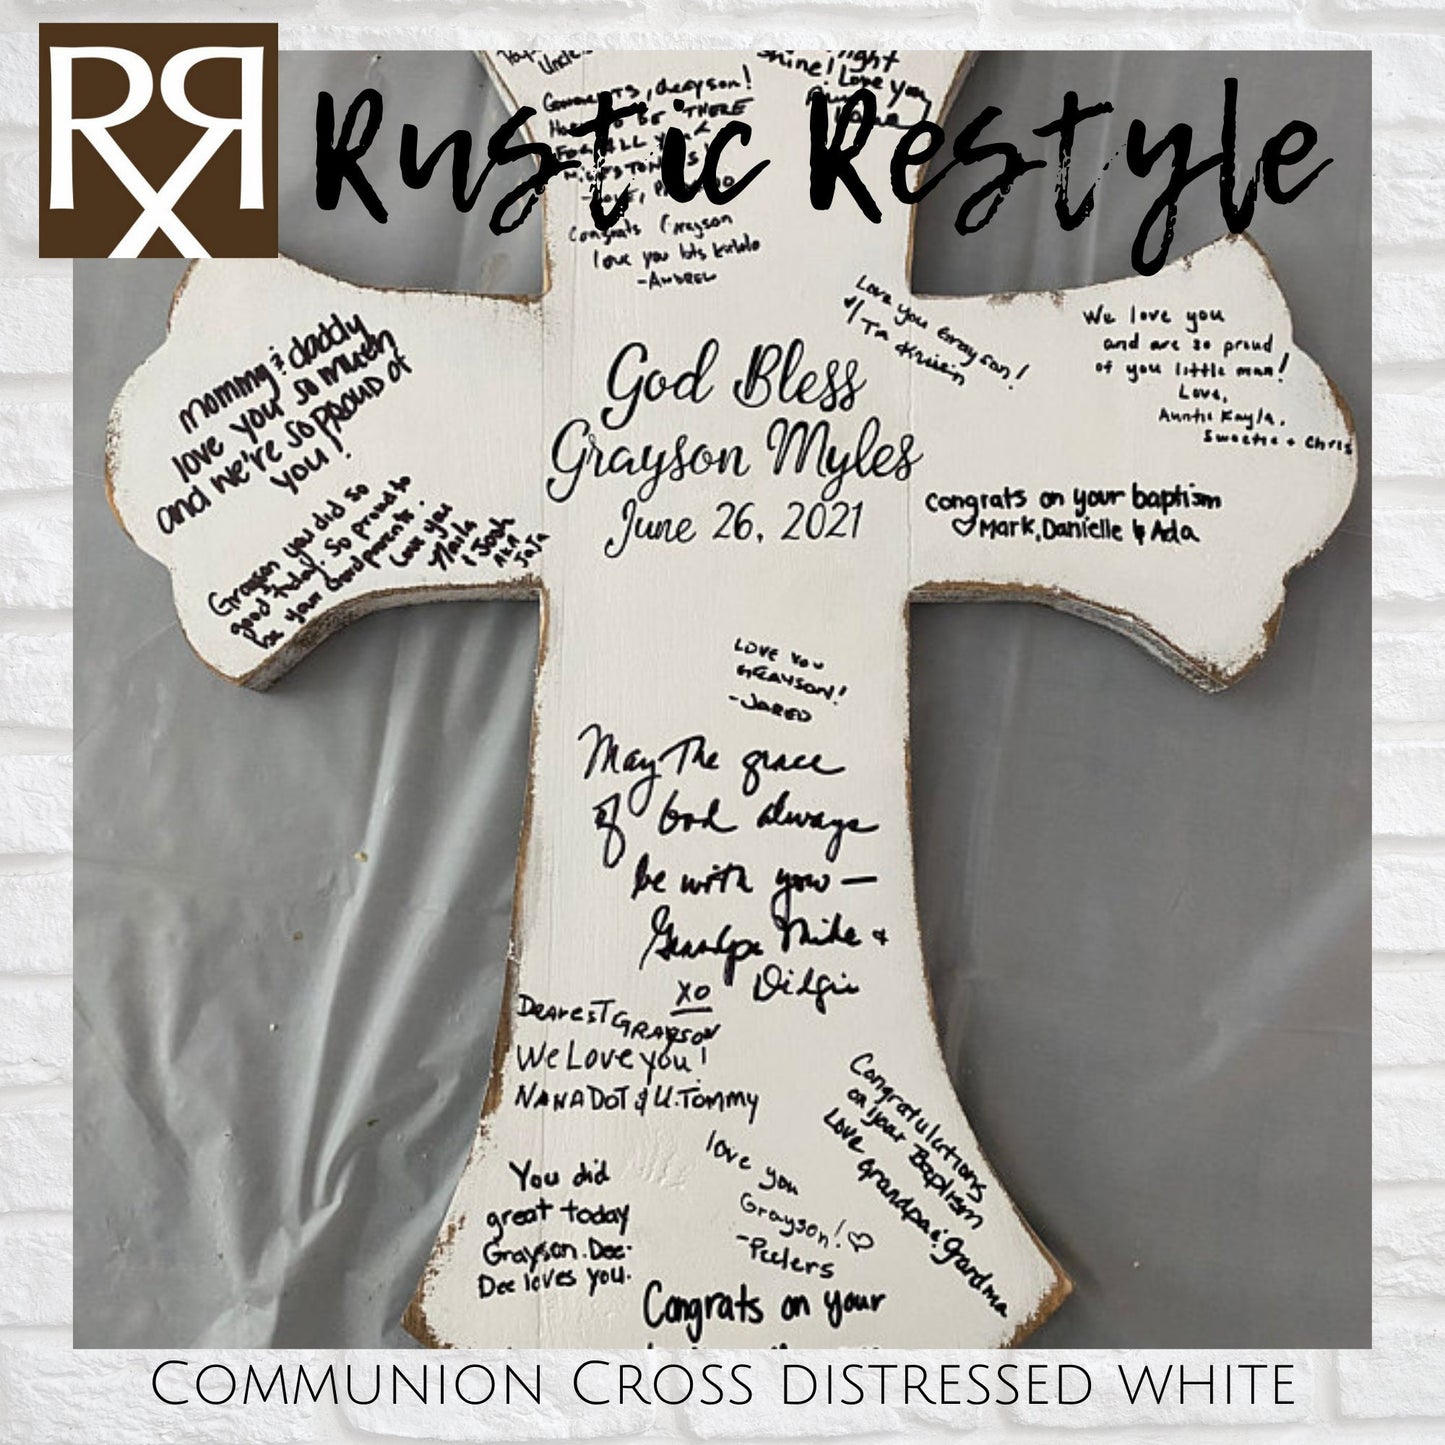 RRX
Rustic Restyle
Uncle
Congrats, Grayson!
TO BE THERE
FOR ALL YOUR
MILESTONES!
Congrats Grayson
love you lots
-ANDREW
shine! Love you
God Bless
Grayson Myles
June 26, 2021
mommy & daddy
love you so much
and we're so PROUD of
you!
Grayson you did so
good today. So proud to
be your Godparents!
Love you
& Josh
AKA
JaJa
Love you Grayson!
We love you
and are so proud
of you little man!
Love,
Auntie Kayla,
Sweetie + Chris
congrats on your baptism
♡ Mark, Danielle & Ada
LOVE YOU
GRAYSON!
-JARED
May The grace
of God always
be with you —
Grandpa Mike +
XO
DEAREST GRAYSON
We Love you!
NANA DOT & U. Tommy
Congratulations
on your Baptism
Love grandpa & grandma
You did
great today
Grayson. Dee-
Dee loves you.
love you
Grayson! ♡
-Peelers
Congrats on your
COMMUNION CROSS DISTRESSED WHITE